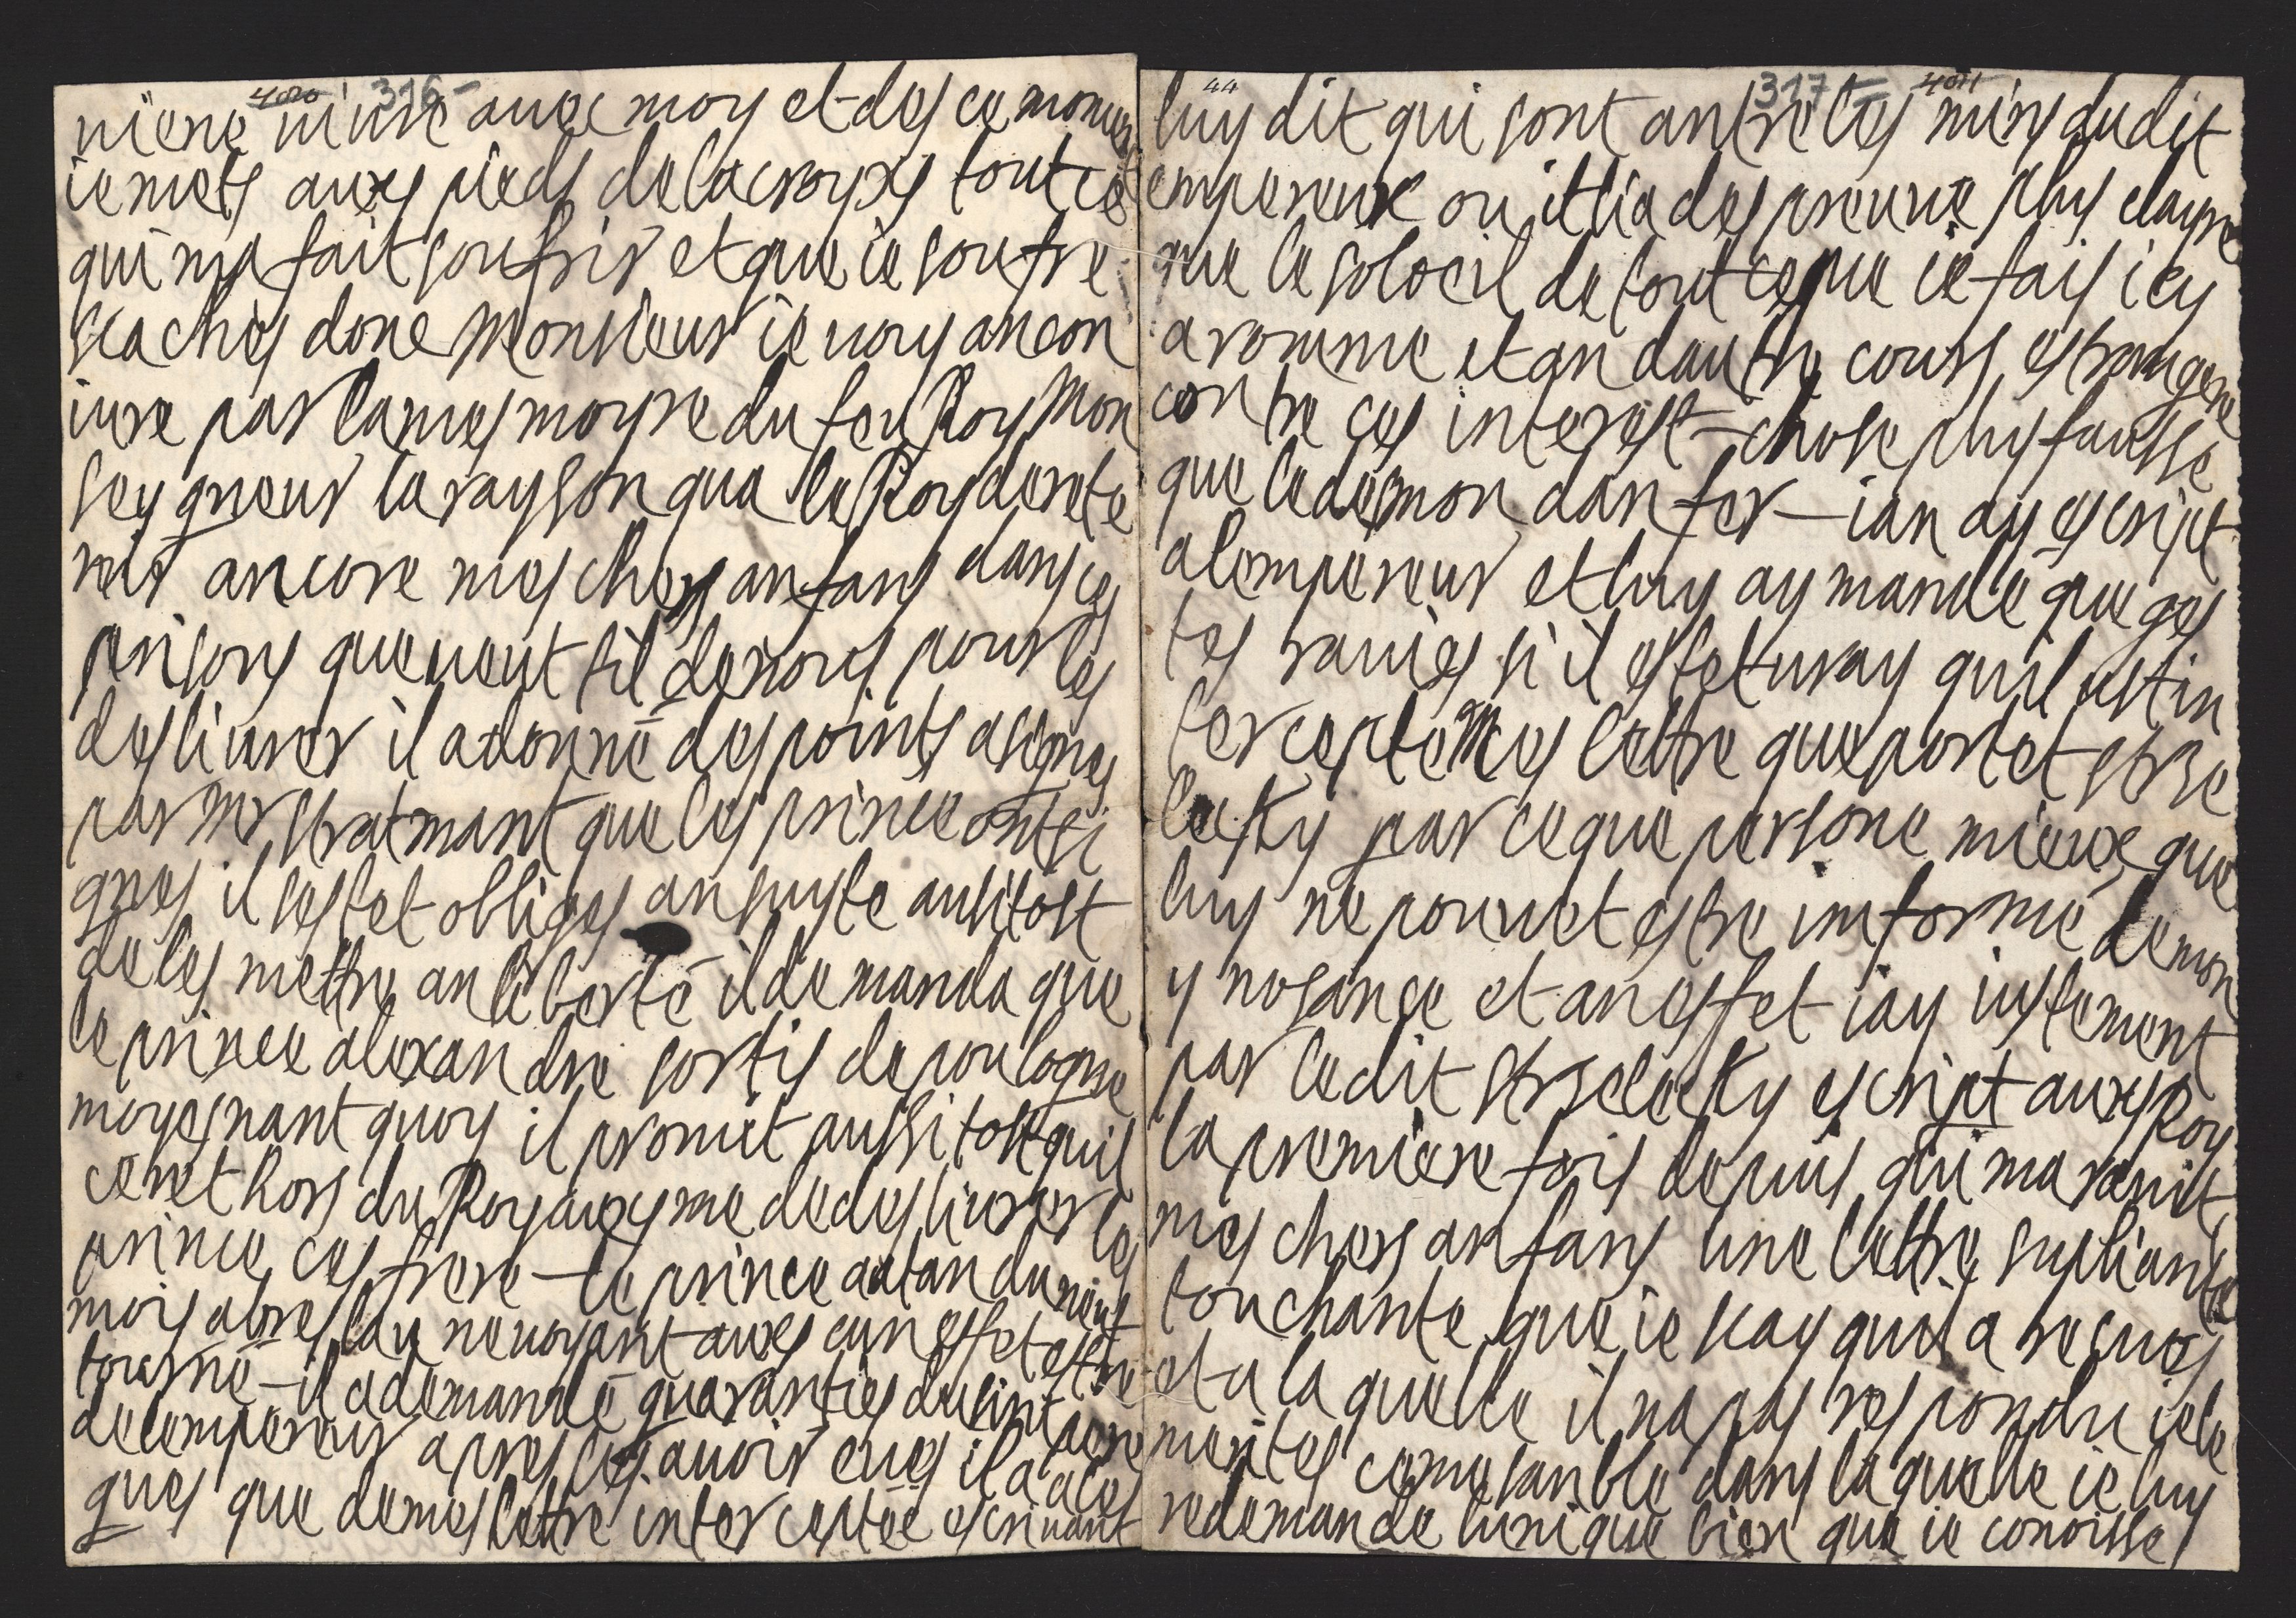 4010 316
niene niure auex moy et des ce momen
ie mets auxs pieds de la croyxs tout ce
qui ma fait soufrir et que ie soufre
scachés donc Monsieur ie vous an con
iure par la mesmoyre du feu Roy Mon
seygneur la rayson qua le Roy derete
nir ancore mes chers anfans dans ces
prisons que veut til de nous pour les
desliurer il a donné des points asignes
par Mr stratmant que les prince ont si
gnes il sestet obliges an suyte ausitost
de les mettre an liberté il demanda que
le prince alexandre sortis de poulogne
moyesnant quoy il promit aussi tost quil
ceret hors du Royauxyme de desliurer les
prince ces frere - le prince a atandu neuf
mois apres cau ne voyant auxs cun esfet estre
tourné - il a demandé guaranties du sint pere
de lempereur apres les auoir eues il a ales
gues que de mes lettre interceptée escriuant
44 317 4011
luy dit qui sont antre les mins dudit
empereur ou il lia des preuue plus clayre
que le soloeil de tout ce que ie fais icy
a romme et an dautre cours estrangere
contre ces interest - chose plus fausse
que le desmon danfer - ian ay escript
a lempereur et luy ay mandé que ges
tes rauies si il estet vray quil ust in
tercepté mes lettre que portet strze
lecky par ce que persone mieux que
luy ne pouuet estre imformé de mon
ynosance et an esffet iay iustement
par ledit strzelecky escript auxs Roy
la premiere fois depuis qui ma rauit
mes chers anfans une lettre supliante
touchante que ie scay quil a recues
et a la quelle il na pas respondu ie le
merites come sanble dans la quelle ie luy
redemande lunique bien que ie conoisse